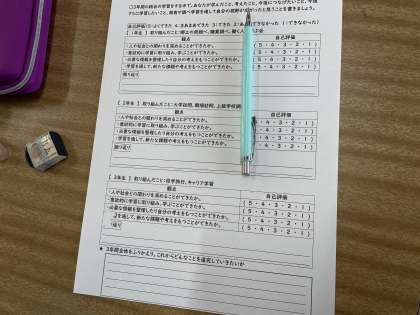 ○3年間の総合の学習をするまで、あなたが学んだこと、考えたこと、今後につなげたいこと、今後
さらに学習したいこと、
自己評価(5:よくできた 4:まあまあできた 3:できた 2:あまりできなかった 1:できなかった)
【1年生 】取り組んだこと:
観点
自己評価
・人や社会との関わりを深めることができたか。
(5・4・3・2・1)
・意欲的に学習に取り組み、学ぶことができたか。
(5・4・3・2・1)
・必要な情報を整理したり自分の考えをもつことができたか。
(5・4・3・2・1)
・学習を通して、新たな課題や考えをもつことができたか。
(5・4・3・2・1)
振り返り
【2年生 】取り組んだこと:大学訪問、職場訪問、上級学校調
観点
自己評価
・人や社会との関わりを深めることができたか。
(5・4・3・2・1)
・意欲的に学習に取り組み、学ぶことができたか。
(5・4・3・2・1)
・必要な情報を整理したり自分の考えをもつことができたか。
(5・4・3・2・1)
・学習を通して、新たな課題や考えをもつことができたか。
(5・4・3・2・1)
振り返り
【 3年生 】取り組んだこと:修学旅行、キャリア学習
観点
自己評価
・人や社会との関わりを深めることができたか。
(5・4・3・2・1)
・意欲的に学習に取り組み、学ぶことができたか。
(5・4・3・2・1)
・必要な情報を整理したり自分の考えをもつことができたか。
(5・4・3・2・1)
を通して、新たな課題や考えをもつことができたか。
(5・4・3・2・1)
返り
★ 3年間全体をふりかえり、これからどんなことを追究していきたいか